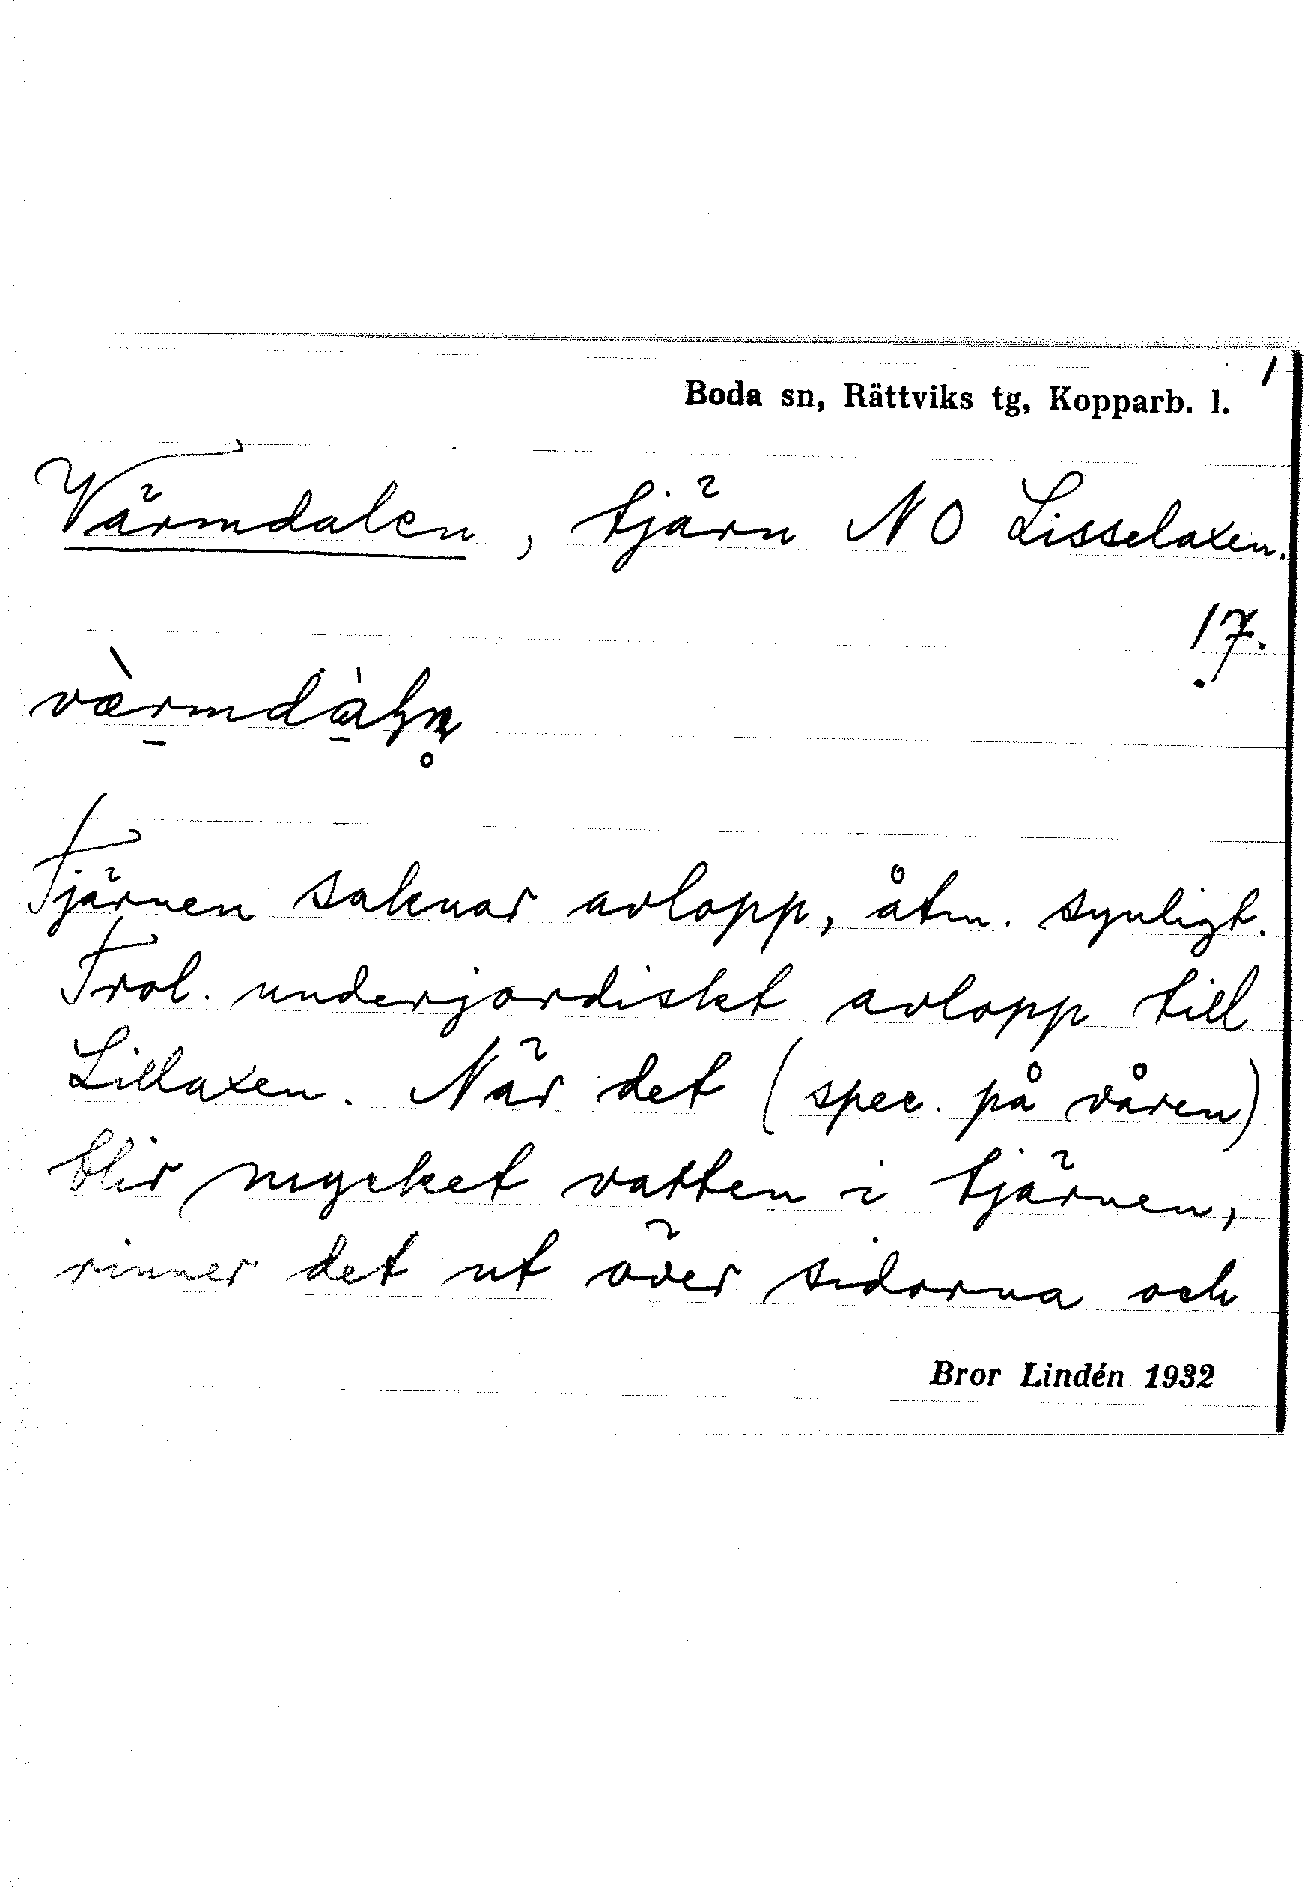 1
Boda sn, Rättviks tg, Kopparb. l.
Värmdalen, tjärn NO Lisselaxen.
17.
Tjärnen saknar avlopp, åtm. synligt.
Trol. underjordiskt avlopp till
Lillaxen. När det (spec. på våren)
blir mycket vatten i tjärnen,
rinner det ut över sidorna och
Bror Lindén 1932